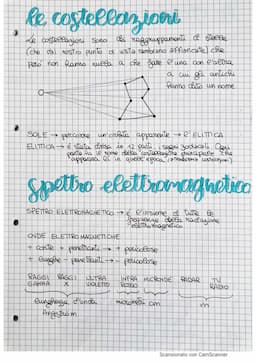 le costellazioni
Le costellazioni sono dei raggruppamenti di stelle
(che dal nostro punto di vista sembrano affiancate) che
però non hanno nulla a che fare l'una con l'altra
a cui gli antichi
hanno dato un nome
SOLE → percorre un'orbita apparente → ECLITTICA
ECLITTICA → è stata divisa in 12 parti, segni zodiacali (ogni
parte ha il nome della costellazione principale che
appariva lì in quelle epoca,
spettro elettromagnetico
SPETTRO ELETTROMAGNETICO → è l'insieme di tutte le
frequenze della radiazione
elettromagnetica
ONDE ELETTROMAGNETICHE
+ corte + penetranti → + pericolose
+ lunghe - penetranti → - pericolose
RAGGI GAMMA RAGGI X ULTRA VIOLETTO INFRA ROSSO MICROONDE RADAR TV RADIO
lunghezza d'onda cm m
Angstrom
Scansionato con CamScanner